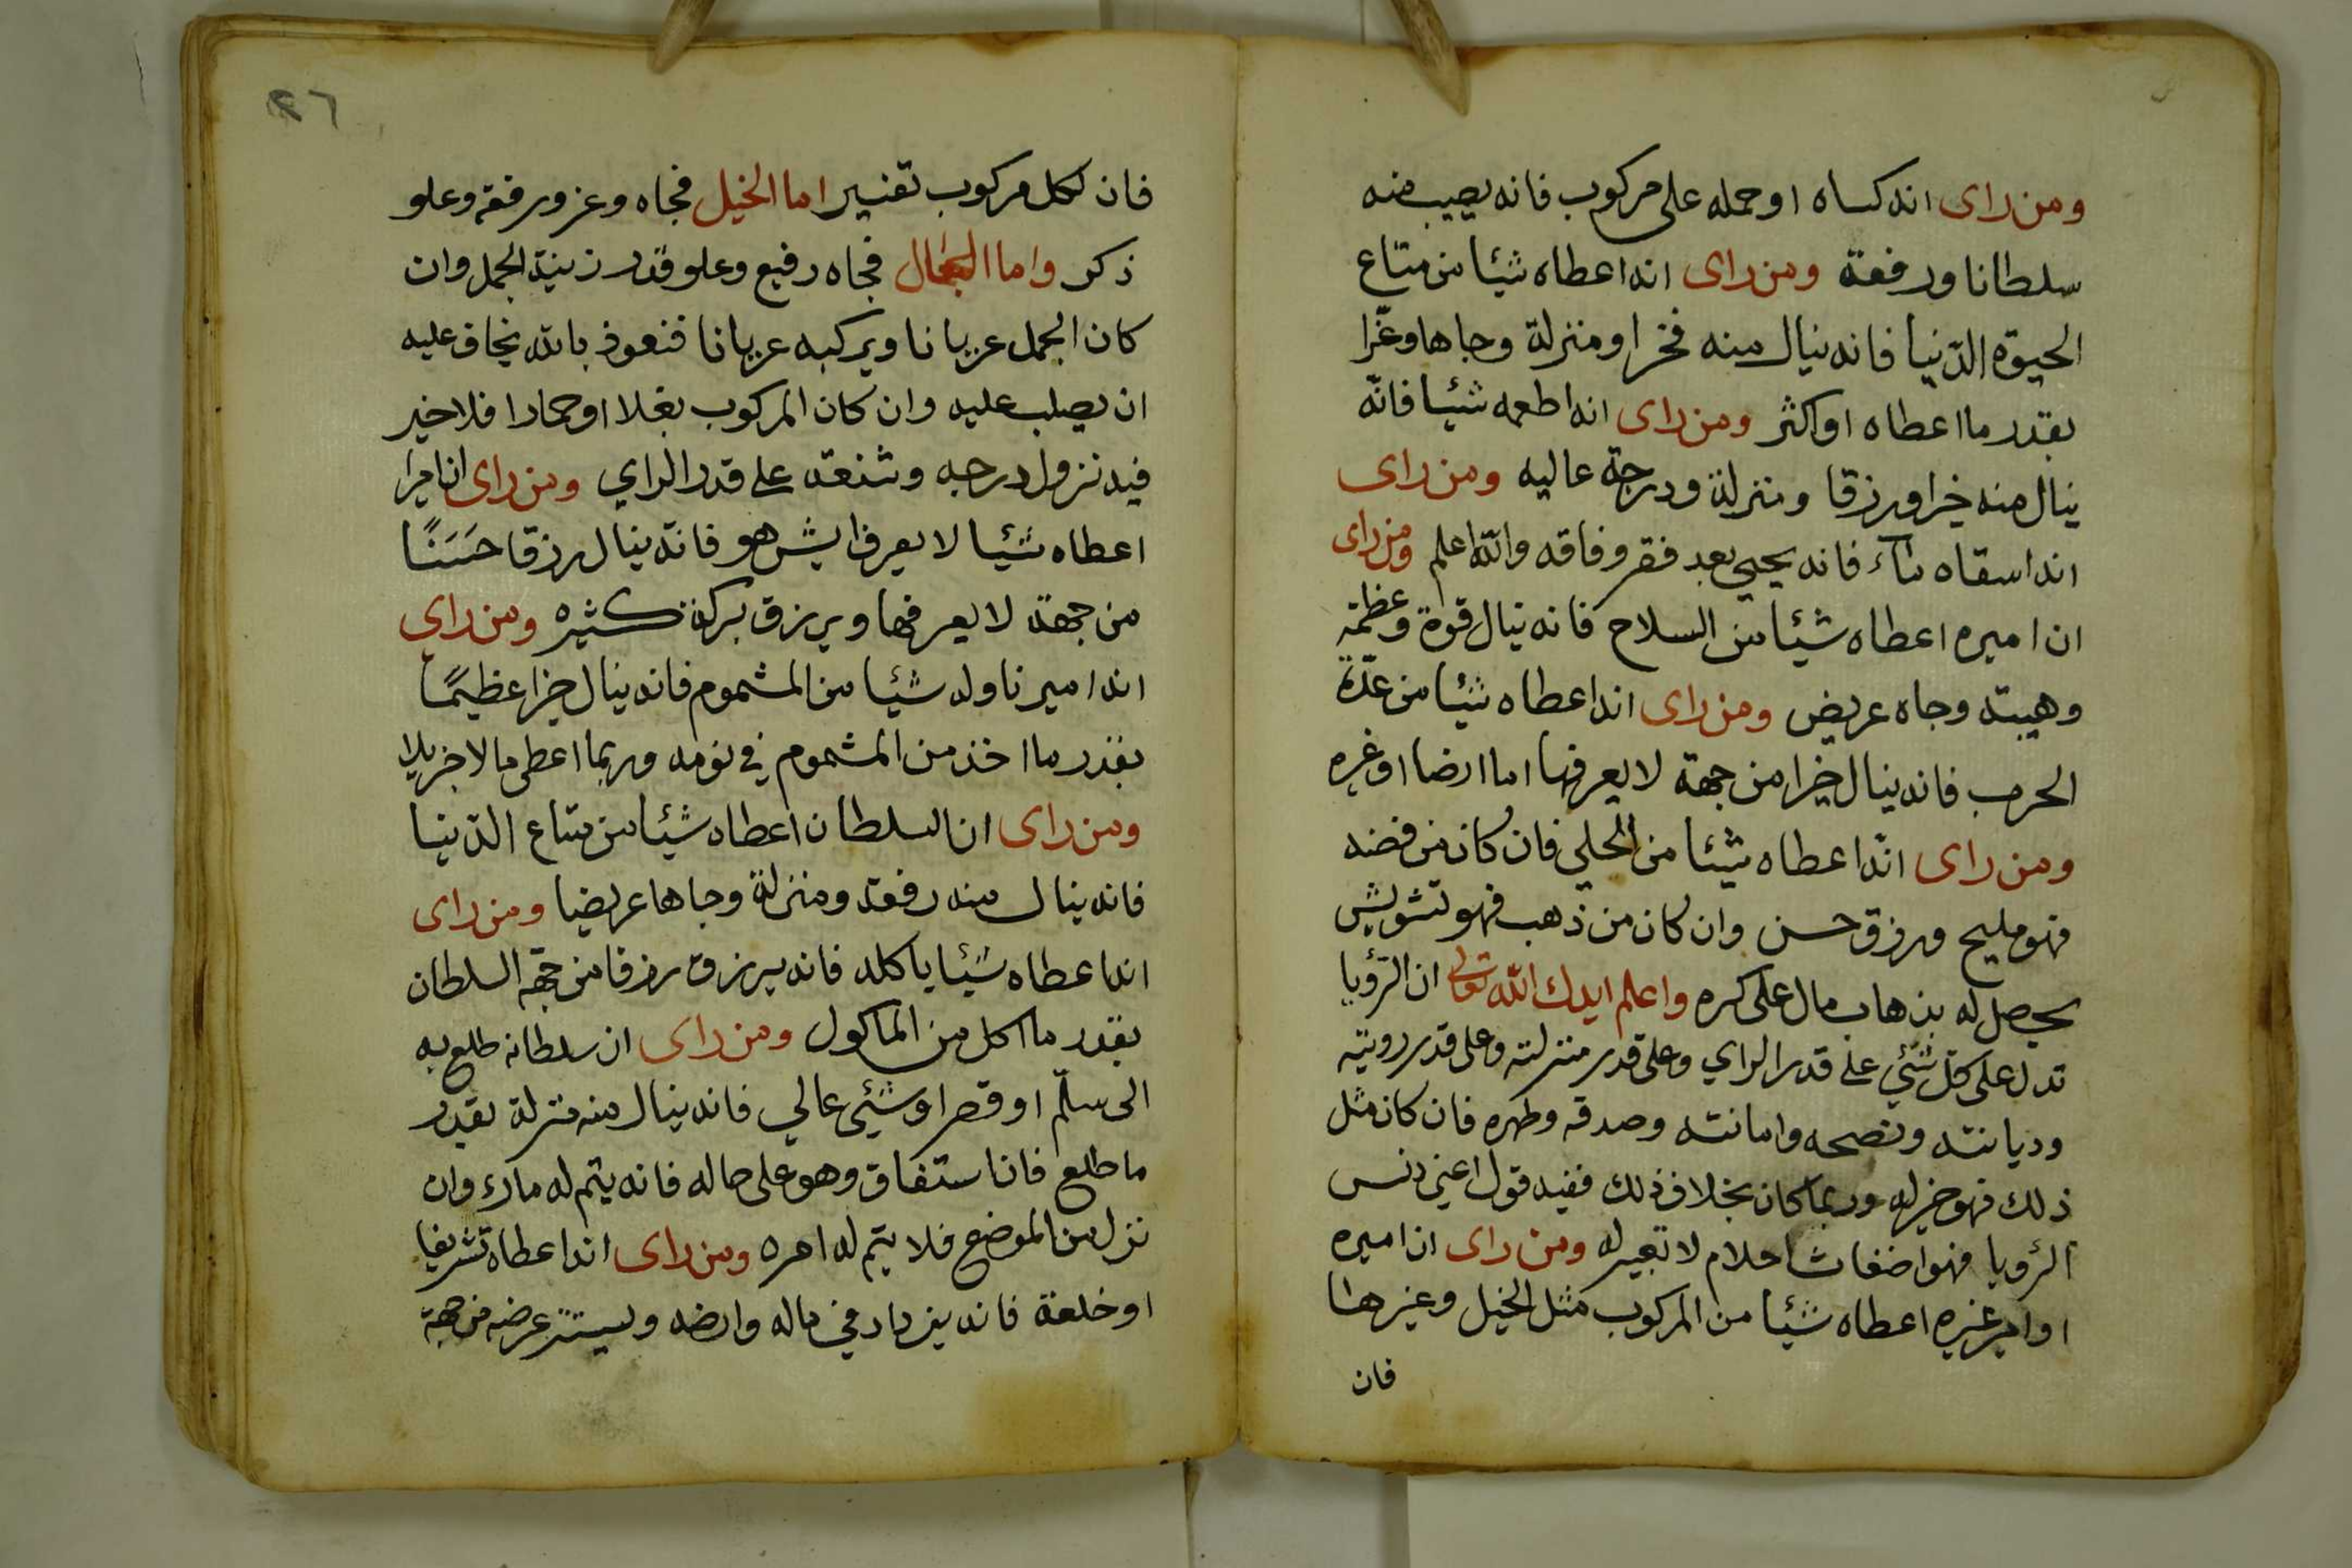 ومن راى انه كساه او حمله على مركوب فانه يصيب منه
سلطانا ورفعة ومن راى انه اعطاه شيئا من متاع
الحيوة الدّنيا فانه ينال منه فخرا ومنزلة وجاها وعزّا
بقدر ما اعطاه او اكثر ومن راى انه اطعمه شيئا فانّه
ينال منه خيرا ورزقا ومنزلة ودرجة عاليه ومن راى
انه اسقاه ماء فانه يحيى بعد فقر وفاقه والله اعلم ومن راى
ان اميره اعطاه شيئا من السلاح فانه ينال قوة وعظمة
وهيبة وجاه عريض ومن راى انه اعطاه شيئا من عدّة
الحرب فانه ينال خيرا من جهة لا يعرفها اما ارضا او غيره
ومن راى انّه اعطاه شيئا من الحلي فان كان من فضه
فهو مليح ورزق حسن وان كان من ذهب فهو تشويش
يحصل له بذهاب مال على كره واعلم ايدك الله تعالى ان الرّؤيا
تدل على كل شئي على قدر الراي وعلى قدر منزلته وعلى قدر رويته
وديانته ونصحه وامانته وصدقه وطهره فان كان مثل
ذلك فهو خير له وربما كان بخلاف ذلك ففيه قول اعني دنس
الرؤيا فهو اضغاث احلام لا تعبير له ومن راى ان اميره
او امير غيره اعطاه شيئا من المركوب مثل الخيل وغيرها
فان
٢٦
فان لكل مركوب تفسير اما الخيل فجاه وعز ورفقه وعلو
ذكر واما الجمال فجاه رفيع وعلو قدر زينة الجمل وان
كان الجمل عريانا ويركبه عريانا فنعوذ بالله يخاف عليه
ان يصلب عليه وان كان المركوب بغلا او حمارا فلا خير
فيه نزول درجه وشنعة على قدر الراي ومن راى ان اميرا
اعطاه شيئا لا يعرف ايش هو فانّه ينال رزقا حَسَنًا
من جهة لا يعرفها ويرزق بركة كثيره ومن راي
انه امير ناوله شيئا من المشموم فانه ينال خيرا عظيمًا
بقدر ما اخذ من المشموم في نومه وربما اعطى مالا جزيلا
ومن راى ان السلطان اعطاه شيئا من متاع الدّنيا
فانه ينال منه رفعة ومنزلة وجاها عريضا ومن راى
انه اعطاه شيئا ياكله فانه يرزق رزقا من جهة السلطان
بقدر ما اكل من الماكول ومن راى ان سلطانه طلع به
الى سلّم او قصر او شئي عالي فانه ينال منه منزلة بقدر
ما طلع فان استفاق وهو على حاله فانه يتم له وان
نزل من الموضع فلا يتم له امره ومن راى انه اعطاه تشريفا
او خلعة فانه يزداد في ماله وارضه ويستتر عرضه من جهة